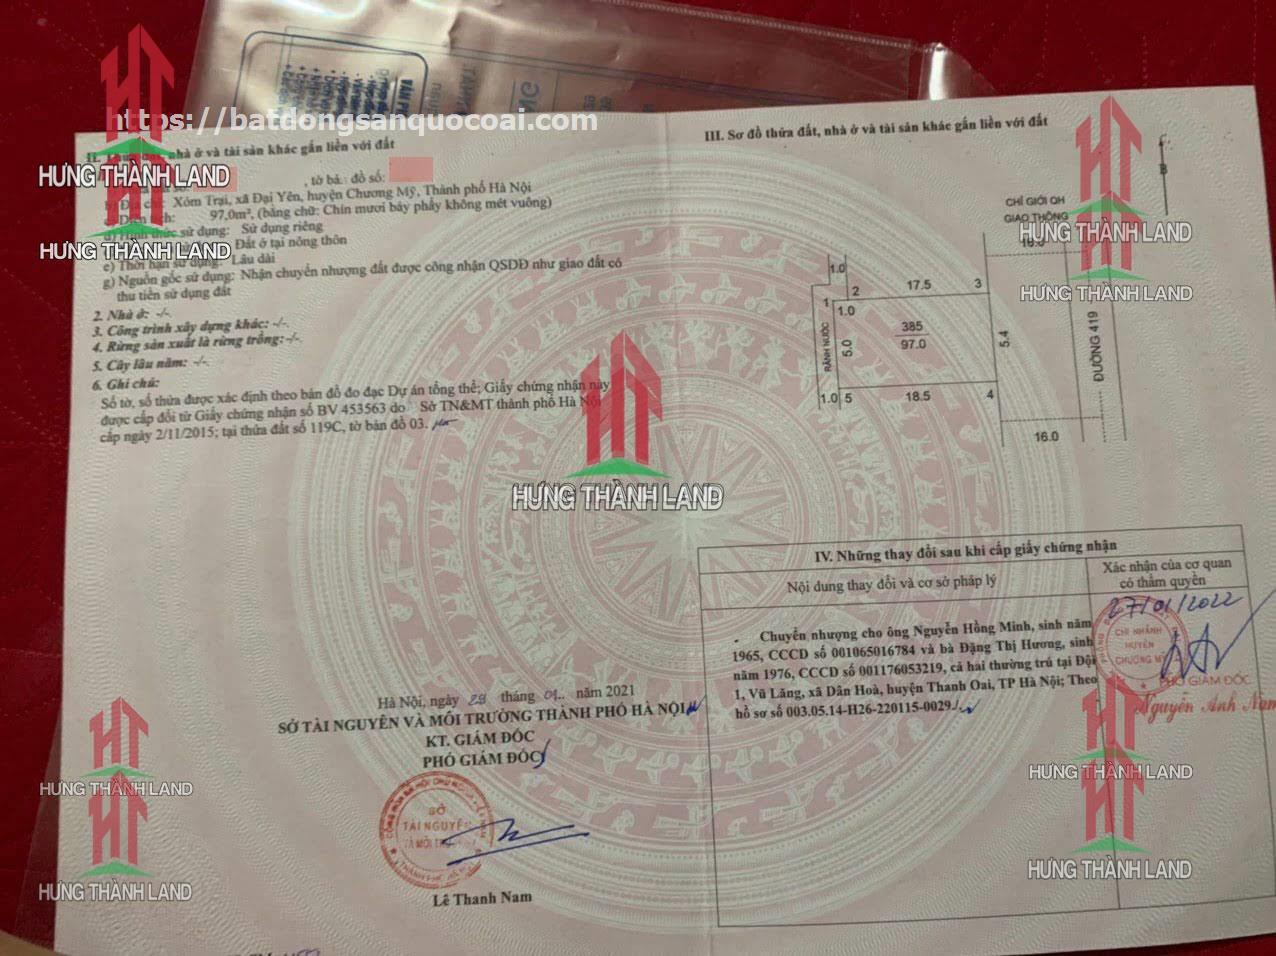 https://batdongsanquocoai.com
HƯNG THÀNH LAND
HƯNG THÀNH LAND
nhà ở và tài sản khác gắn liền với đất
, tờ bản đồ số:
Xóm Trại, xã Đại Yên, huyện Chương Mỹ, Thành phố Hà Nội
97,0m², (bằng chữ: Chín mươi bảy phẩy không mét vuông)
sử dụng: Sử dụng riêng
Đất ở tại nông thôn
e) Thời hạn sử dụng: Lâu dài
g) Nguồn gốc sử dụng: Nhận chuyển nhượng đất được công nhận QSDĐ như giao đất có
thu tiền sử dụng đất
2. Nhà ở: -/-.
3. Công trình xây dựng khác: -/-.
4. Rừng sản xuất là rừng trồng: -/-.
5. Cây lâu năm: -/-.
6. Ghi chú:
Số tờ, số thửa được xác định theo bản đồ đo đạc Dự án tổng thể; Giấy chứng nhận này
được cấp đổi từ Giấy chứng nhận số BV 453563 do Sở TN&MT thành phố Hà Nội
cấp ngày 2/11/2015; tại thửa đất số 119C, tờ bản đồ 03.
HƯNG THÀNH LAND
Hà Nội, ngày 29 tháng 01.. năm 2021
SỞ TÀI NGUYÊN VÀ MÔI TRƯỜNG THÀNH PHỐ HÀ NỘI
KT. GIÁM ĐỐC
PHÓ GIÁM ĐỐC
SỞ
TÀI NGUYÊN
VÀ MÔI
Lê Thanh Nam
HƯNG THÀNH LAND
HƯNG THÀNH LAND
III. Sơ đồ thửa đất, nhà ở và tài sản khác gắn liền với đất
B
CHỈ GIỚI QH
GIAO THÔNG
HƯNG THÀNH LAND
16.0
HƯNG THÀNH LAND
1.0
2
17.5
3
1
1.0
RÃNH NƯỚC
5.0
385
97.0
5.4
ĐƯỜNG 419
1.0
5
18.5
4
16.0
IV. Những thay đổi sau khi cấp giấy chứng nhận
Nội dung thay đổi và cơ sở pháp lý
Xác nhận của cơ quan
có thẩm quyền
27/01/2022
- Chuyển nhượng cho ông Nguyễn Hồng Minh, sinh năm
1965, CCCD số 001065016784 và bà Đặng Thị Hương, sinh
năm 1976, CCCD số 001176053219, cả hai thường trú tại Đội
1, Vũ Lăng, xã Dân Hoà, huyện Thanh Oai, TP Hà Nội; Theo
hồ sơ số 003.05.14-H26-220115-0029./.
CHI NHÁNH
HUYỆN
CHƯƠNG MỸ
PHÓ GIÁM ĐỐC
Nguyễn Anh Nam
HƯNG THÀNH LAND
HƯNG THÀNH LAND